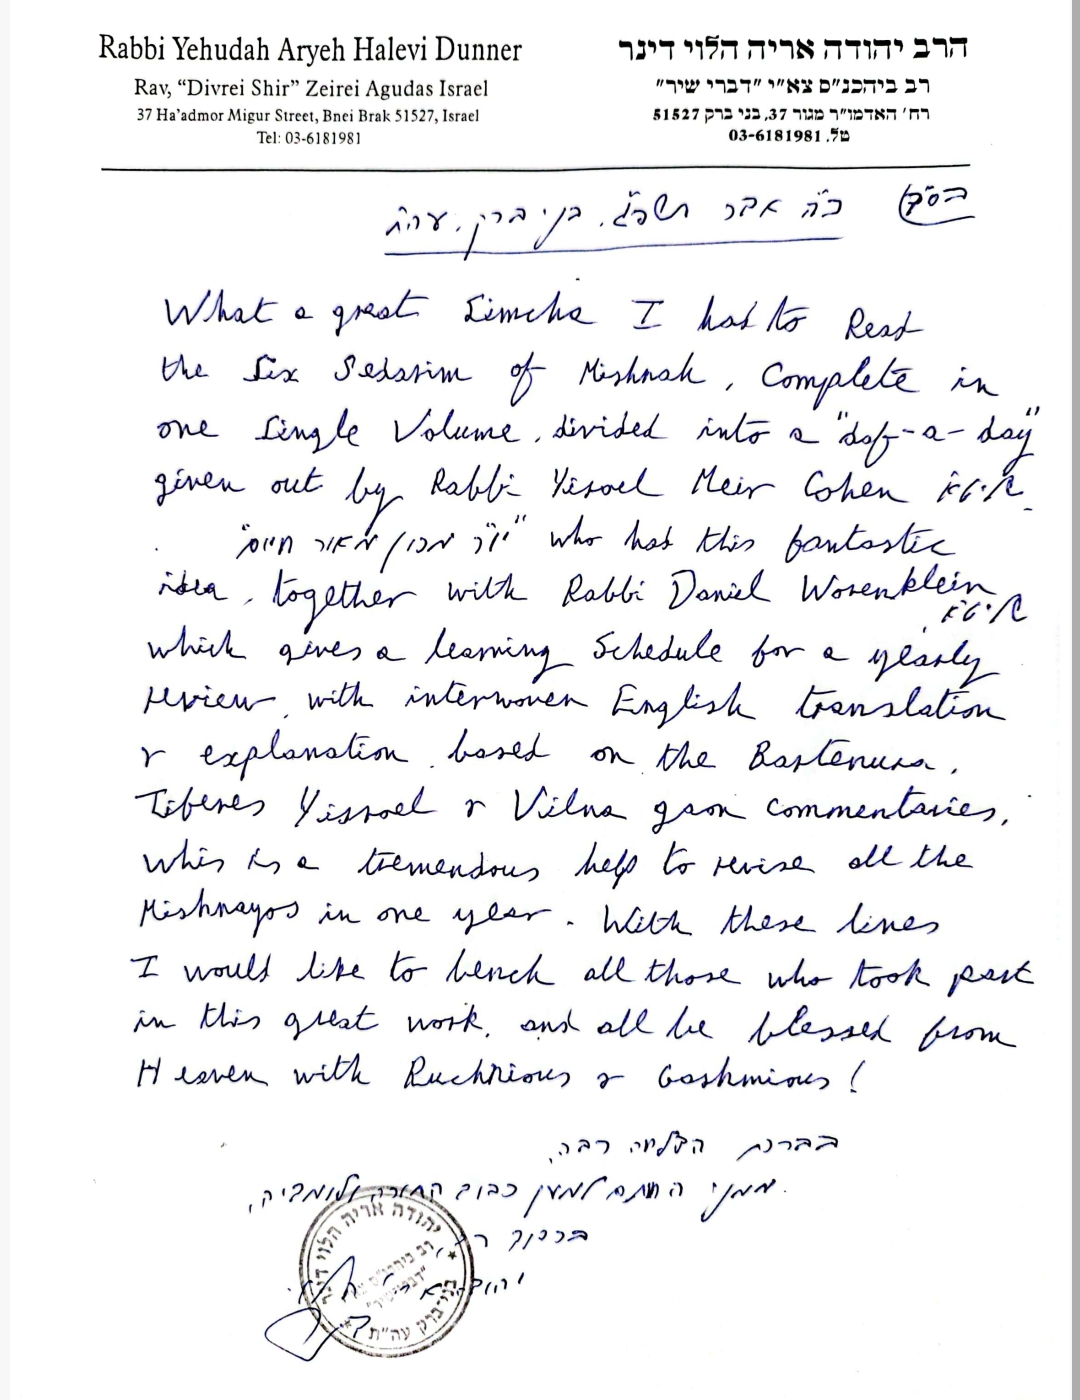 Rabbi Yehudah Aryeh Halevi Dunner
Rav, “Divrei Shir” Zeirei Agudas Israel
37 Ha'admor Migur Street, Bnei Brak 51527, Israel
Tel: 03-6181981
הרב יהודה אריה הלוי דינר
רב ביהכנ"ס צא"י "דברי שיר"
רח' האדמו"ר מגור 37, בני ברק 51527
טל. 03-6181981
בס"ד
כ"ה אדר תשפ"ג, בני ברק, עה"ת
What a great Simcha I had to Read
the Six Sedarim of Mishnah, Complete in
one Single Volume, divided into a "daf-a-day"
given out by Rabbi Yisroel Meir Cohen שליט"א
יו"ר מכון "מאור חיים" who had this fantastic
idea, together with Rabbi Daniel Worenklein
שליט"א
which gives a learning Schedule for a yearly
review, with interwoven English translation
& explanation, based on the Bartenura,
Tiferes Yisroel & Vilna gaon commentaries,
whis is a tremendous help to revise all the
Mishnayos in one year. With these lines
I would like to bench all those who took part
in this great work, and all be blessed from
Heaven with Ruchnious & Gashmious!
בברכת הצלחה רבה,
ממני החותם למען כבוד התורה ולומדיה,
יהודה אריה הלוי דינר
רב ביהכנ"ס
"דברי שיר"
בני-ברק עה"ת